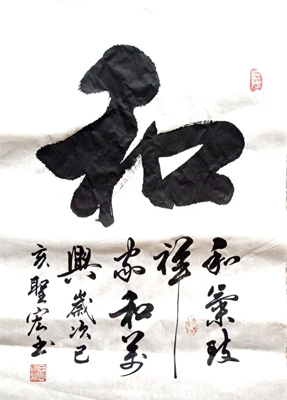 和
和氣致
祥
家和萬
興歲次己
亥聖宏书